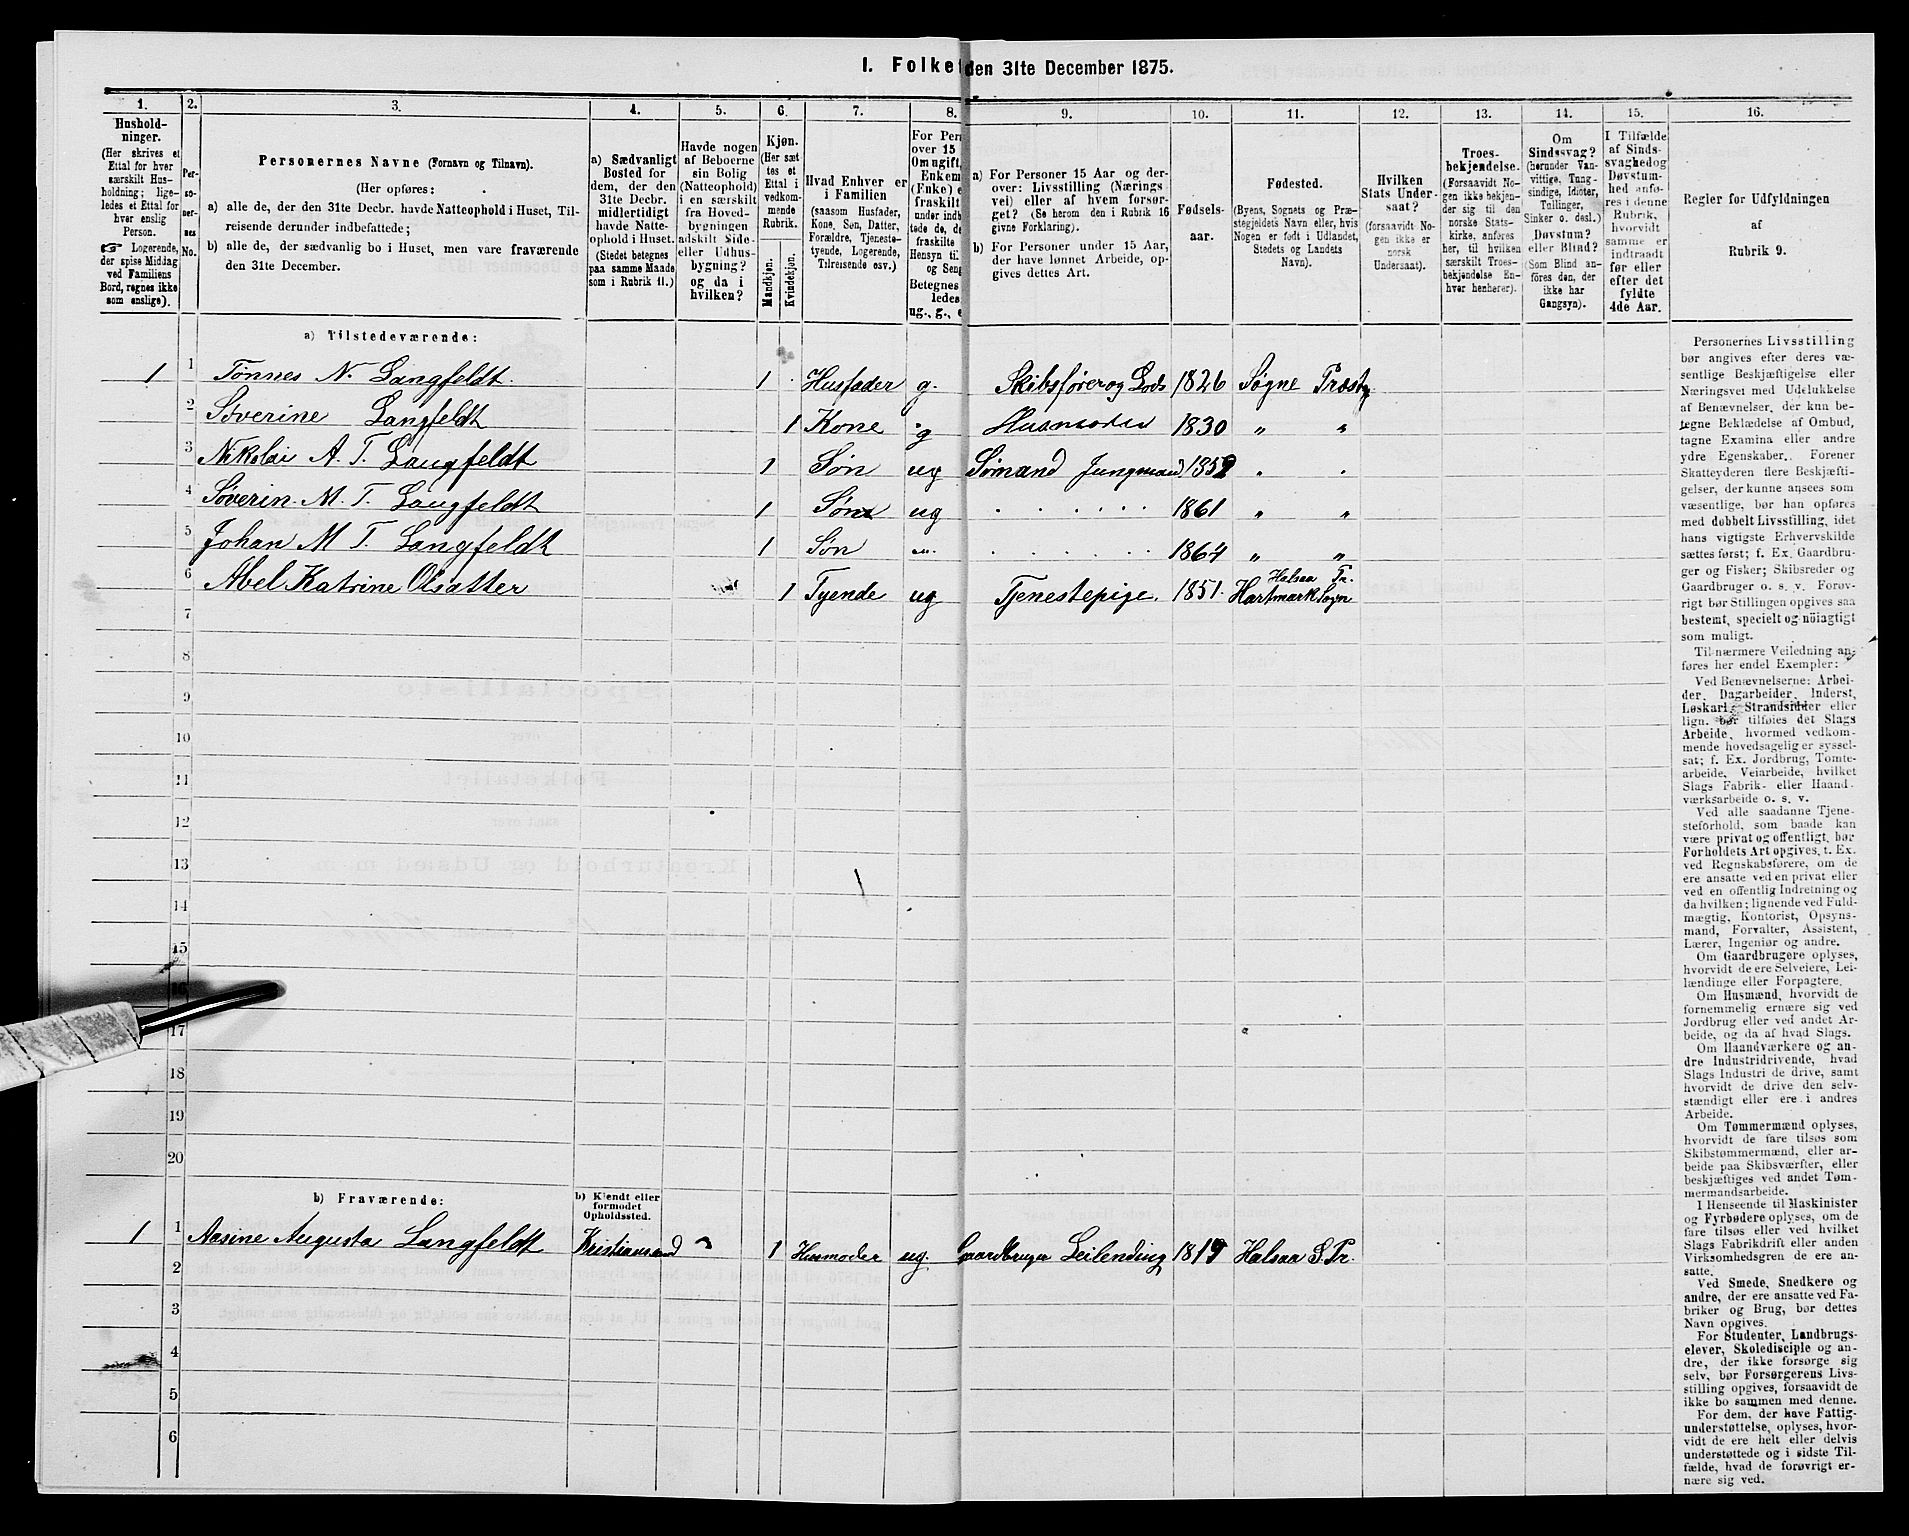 I. Folket den 31te December 1875.
1. 2. 3. 4. 5. 6. 7. 8. 9. 10. 11. 12. 13. 14. 15. 16.
Hushold-
ninger.
(Her skrives et
Ettal for hver
særskilt Hus-
holdning; lige-
ledes et Ettal for
hver enslig
Person.
Logerende,
der spise Middag
ved Familiens
Bord, regnes ikke
som enslige).
Per-
so-
ner-
nes
No.
Personernes Navne (Fornavn og Tilnavn).
(Her opføres:
a) alle de, der den 31te Decbr. havde Natteophold i Huset, Til-
reisende derunder indbefattede;
b) alle de, der sædvanlig bo i Huset, men vare fraværende
den 31te December.
a) Sædvanligt
Bosted for
dem, der den
31te Decbr.
midlertidigt
havde Natte-
ophold i Huset.
(Stedet betegnes
paa samme Maade
som i Rubrik 11.)
Havde nogen
af Beboerne
sin Bolig
(Natteophold)
i en særskilt
fra Hoved-
bygningen
adskilt Side-
eller Udhus-
bygning?
og da i
hvilken?
Kjøn.
(Her sæt
tes et
Ettal i
vedkom-
mende
Rubrik.
Mandkjøn.
Kvindekjøn.
Hvad Enhver er
i Familien
(saasom Husfader,
Kone, Søn, Datter,
Forældre, Tjeneste-
tyende, Logerende,
Tilreisende osv.)
For Per
over 15
Om ugift,
Enkem
(Enke) e
fraskilt
under indb
tede de, d
fraskilte
Hensyn til
og Seng
Betegnes
ledes
ug., g., e
a) For Personer 15 Aar og der-
over: Livsstilling (Nærings
vei) eller af hvem forsør-
get? (Se herom den i Rubrik 16
givne Forklaring).
b) For Personer under 15 Aar,
der have lønnet Arbeide, op-
gives dettes Art.
Fødsels-
aar.
Fødested.
(Byens, Sognets og Præ-
stegjeldets Navn eller, hvis
Nogen er født i Udlandet,
Stedets og Landets
Navn).
Hvilken
Stats Under-
saat?
(forsaavidt No-
gen ikke er
norsk
Undersaat).
Troes-
bekjendelse.
(Forsaavidt No-
gen ikke bekjen-
der sig til den
norske Stats-
kirke, anføres
her, til hvilken
særskilt Troes-
bekjendelse En-
hver henhører).
Om
Sindssvag?
(herunder Van-
vittige, Tung-
sindige, Idioter,
Tullinger,
Sinker o. desl.)
Døvstum?
eller Blind?
(Som Blind an-
føres den, der
ikke har
Gangsyn).
I Tilfælde
af Sinds-
svaghed og
Døvstum-
hed anfø-
res i denne
Rubrik,
hvorvidt
samme er
indtraadt
før eller
efter det
fyldte
4de Aar.
Regler for Udfyldningen
af
Rubrik 9.
a) Tilstedeværende:
1 1 Tønnes N. Langfeldt 1 Husfader g. Skibsfører og Lods 1826 Søgne Præstg
2 Severine Langfeldt 1 Kone g Husmoder 1830 " "
3 Nikolai A. T. Langfeldt 1 Søn ug Sømand Jungmand " "
4 Søverin M. T. Langfeldt 1 Søn ug " 1861 " "
5 Johan M T. Langfeldt 1 Søn " 1864 " "
6 Abel Katrine Olsdatter 1 Tyende ug Tjenestepige 1851. Halsaa Pr. Hartmark Sogn
7
8
9
10
11
12
13
14
15
16
17
18
19
20
b) Fraværende:
b) Kjendt eller
formodet
Opholdssted.
1 1 Aasine Augusta Langfeldt Kristiansand 1 Husmoder ug. Gaardbruger Leilending Halsaa S. Pr.
2
3
4
5
6
Personernes Livsstilling
bør angives efter deres væ-
sentlige Beskjæftigelse eller
Næringsvei med Udelukkelse
af Benævnelser, der kun be-
tegne Beklædelse af Ombud,
tagne Examina eller andre
ydre Egenskaber. Forener
Skatteyderen flere Beskjæfti-
gelser, der kunne ansees som
væsentlige, bør han opføres
med dobbelt Livsstilling, idet
hans vigtigste Erhvervskilde
sættes først; f. Ex. Gaardbru-
ger og Fisker; Skibsreder og
Gaardbruger o. s. v. Forøv-
rigt bør Stillingen opgives saa
bestemt, specielt og nöiagtigt
som muligt.
Til nærmere Veiledning an-
føres her endel Exempler:
Ved Benævnelserne: Arbei-
der, Dagarbeider, Inderst,
Løskarl, Strandsidder eller
lign. bør tilføies det Slags
Arbeide, hvormed vedkom-
mende hovedsagelig er syssel-
sat; f. Ex. Jordbrug, Tomte-
arbeide, Veiarbeide, hvilket
Slags Fabrik- eller Haand-
værksarbeide o. s. v.
Ved alle saadanne Tjene-
steforhold, som baade kan
være privat og offentligt, bør
Forholdets Art opgives, t. Ex.
ved Regnskabsførere, om de
ere ansatte ved en privat eller
ved en offentlig Indretning og
da hvilken; lignende ved Fuld-
mægtig, Kontorist, Opsyns-
mand, Forvalter, Assistent,
Lærer, Ingeniør og andre.
Om Gaardbrugere oplyses,
hvorvidt de ere Selveiere, Lei-
lændinge eller Forpagtere.
Om Husmænd, hvorvidt de
fornemmelig ernære sig ved
Jordbrug eller ved andet Ar-
beide, og da af hvad Slags.
Om Haandværkere og an-
dre Industridrivende, hvad
Slags Industri de drive, samt
hvorvidt de drive den selv-
stændigt eller ere i andres
Arbeide.
Om Tømmermænd oplyses,
hvorvidt de fare tilsøs som
Skibstømmermænd, eller ar-
beide paa Skibsværfter, eller
beskjæftiges ved andet Tøm-
mermandsarbeide.
I Henseende til Maskinister
og Fyrbødere oplyses, om de
fare tilsøs eller ved hvilket
Slags Fabrikdrift eller anden
Virksomhedsgren de ere an-
satte.
Ved Smede, Snedkere og
andre, der ere ansatte ved Fa-
briker og Brug, bør dettes
Navn opgives.
For Studenter, Landbrugs-
elever, Skoledisciple og an-
dre, der ikke forsørge sig
selv, bør Forsørgerens Livs-
stilling opgives, forsaavidt de
ikke bo sammen med denne.
For dem, der have Fattig-
understøttelse, oplyses, hvor-
vidt de ere helt eller delvis
understøttede og i sidste Til-
fælde, hvad de forøvrigt er-
nære sig ved.